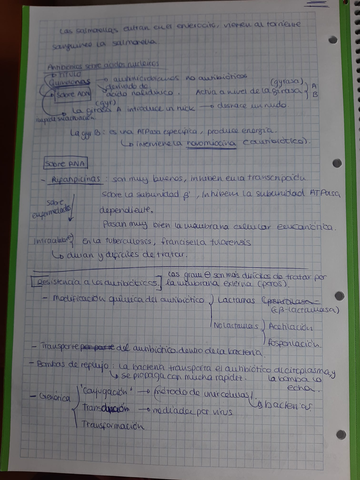 Las salmonelas dentro en el enterocito, vierten al torrente
sanguíneo la salmonela
Antibióticos sobre ácidos nucleicos
Quinolonas → quimioterápicos no antibióticos
Sobre ADN
derivado de
ácido nalidíxico.
Actúa a nivel de la girasa
(girasa)
A
B
(gyr)
La girasa A introduce un nick → deshace un nudo
superenrollamiento
La gyr B: es una ATPasa específica, produce energía
↳ interviene la novomicina (antibiótico)
Sobre RNA
- Rifampicinas → son muy buenos, inhiben en la transcripción
sobre la subunidad β', inhiben la subunidad ATPasa
dependiente.
Pasan muy bien la membrana celular eucariótica
en la tuberculosis, francisella tularensis
↳ duran y difíciles de tratar.
Resistencia a los antibióticos
las gram ⊖ son más difíciles de tratar por
la membrana externa (poros).
- Modificación química del antibiótico
Lactamas
(β-lactamasa)
No lactamas
Acetilación
Fosforilación
- Transporte del antibiótico dentro de la bacteria
- Bombas de reflujo: la bacteria transporta el antibiótico al citoplasma y
la bomba lo
echa.
↳ se propaga con mucha rapidez
- Genética
"Conjugación" → método de unir células
↳ bacterias
Transducción → mediados por virus
Transformación